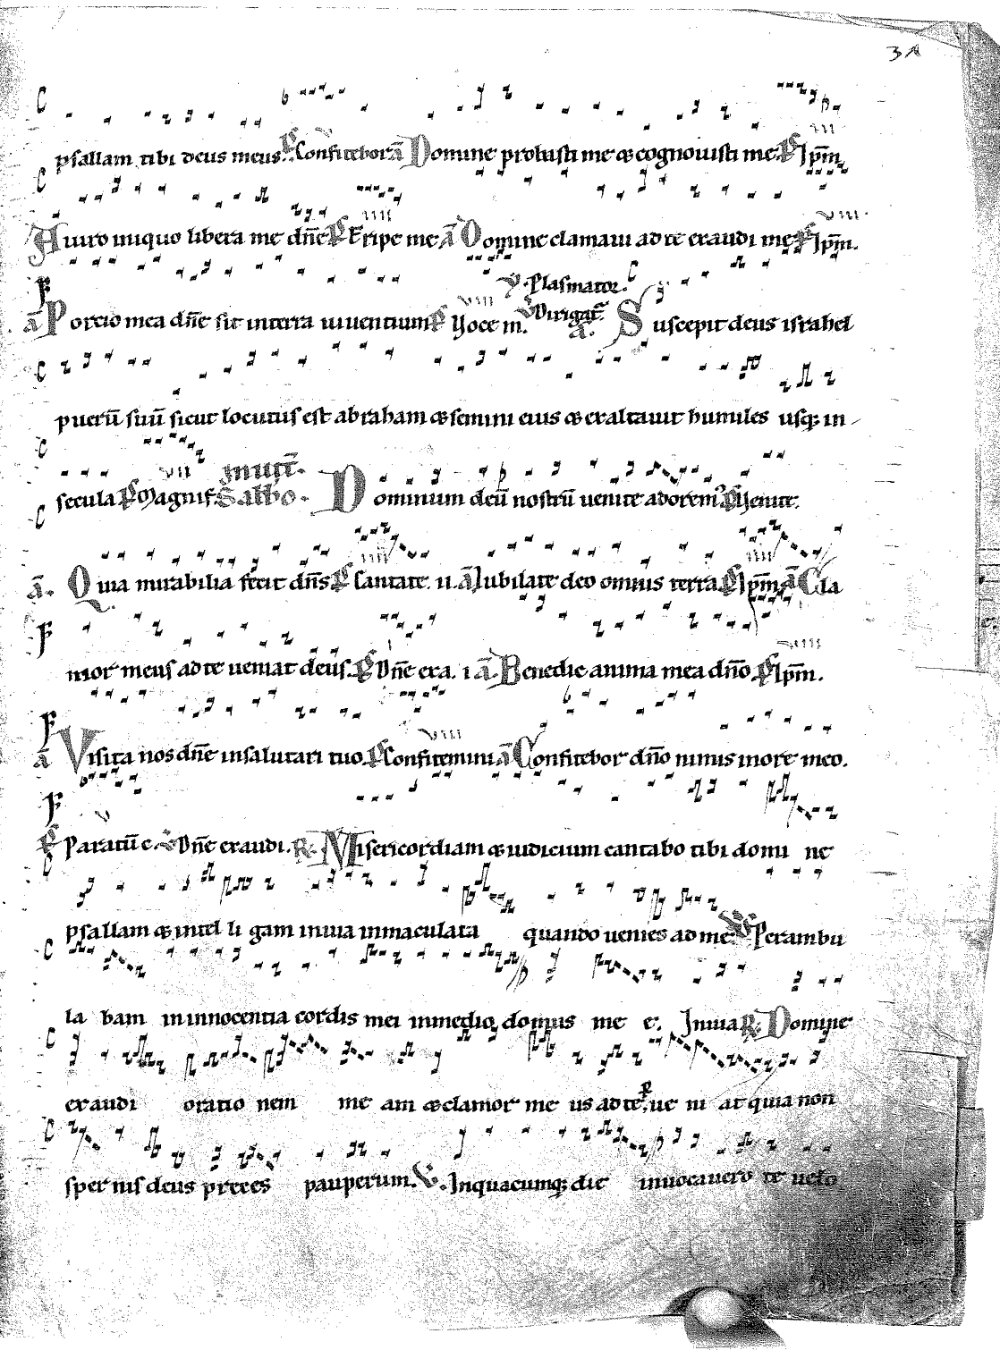 psallam tibi deus meus. P̄ Confitebor ā Domine probasti me & cognovisti me. P̄ Ip̄m
A viro iniquo libera me dn̄e P̄ Eripe me ā Domine clamavi ad te exaudi me P̄ Ip̄m.
℣. Plasmator.
ā Porcio mea dn̄e sit in terra viventium P̄ Voce m. ℣ Dirigat̄ ā. Suscepit deus israhel
puerū suū sicut locutus est abraham & semini eius & exaltavit humiles usq; in
secula P̄ Magnif. Sabbo. Dominum deū nostrū venite adorem' P̄ Venite.
ā. Quia mirabilia fecit dn̄s P̄ Cantate. ii. ā Iubilate deo omnis terra P̄ Ip̄m ā Cla
mor meus ad te veniat deus. P̄ Dn̄e exa. i ā. Benedic anima mea dn̄o P̄ Ip̄m.
ā Visita nos dn̄e in salutari tuo. P̄ Confitemini ā Confitebor dn̄o nimis in ore meo.
P̄ Paratū c. ℣ Dn̄e exaudi. R̄. Misericordiam & iudicium cantabo tibi domi ne
psallam & intel li gam in via inmaculata quando venies ad me. ℣ Perambu
la bam in innocentia cordis mei in medio domus me e. In via R̄. Domine
exaudi oratio nem me am & clamor me us ad te. P̄ ve ni at quia non
sper nis deus preces pauperum. ℣. In quacumq; die invocavero te velo